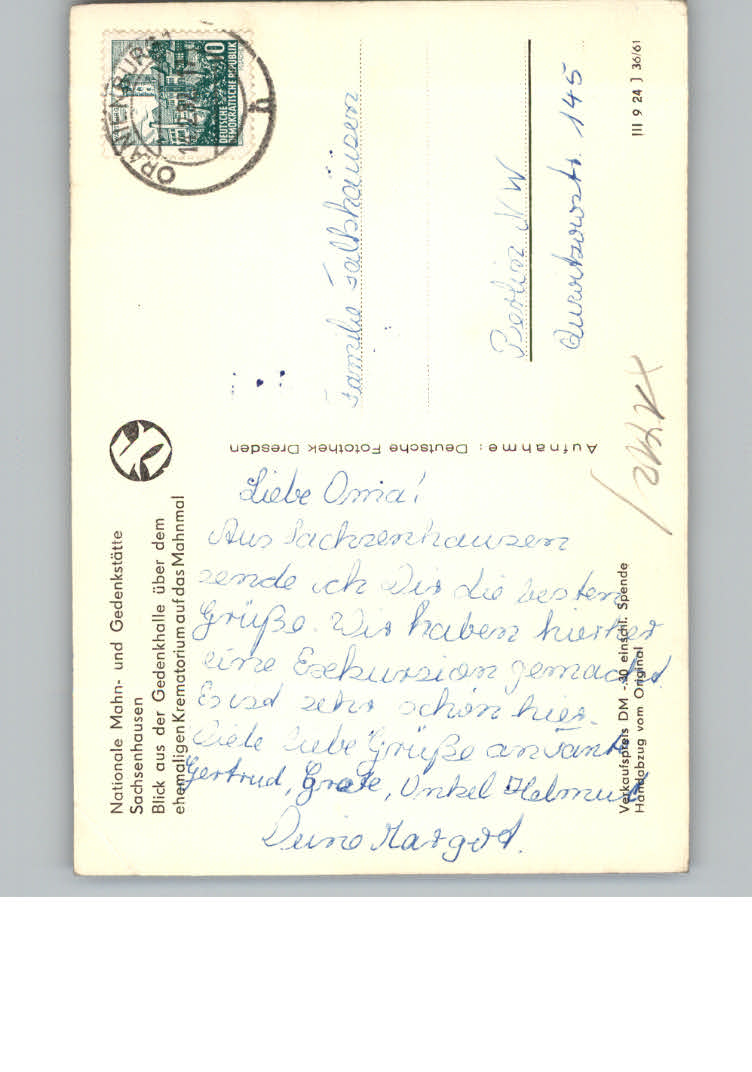 Nationale Mahn- und Gedenkstätte
Sachsenhausen
Blick aus der Gedenkhalle über dem
ehemaligen Krematorium auf das Mahnmal
Liebe Oma!
Aus Sachsenhausen
sende ich Dir die besten
Grüße. Wir haben hierher
eine Exkursion gemacht.
Es ist sehr schön hier.
Viele liebe Grüße an
Gertrud, Grete, Onkel Helmut
Deine Margot.
Verkaufspreis DM -.30 einschl. Spende
Handabzug vom Original
Aufnahme: Deutsche Fotothek Dresden
ORANIENBURG 1
10
DEUTSCHE
DEMOKRATISCHE REPUBLIK
Familie Falkhausen
Berlin NW
Quitzowstr. 145
III 9 24 J 36/61